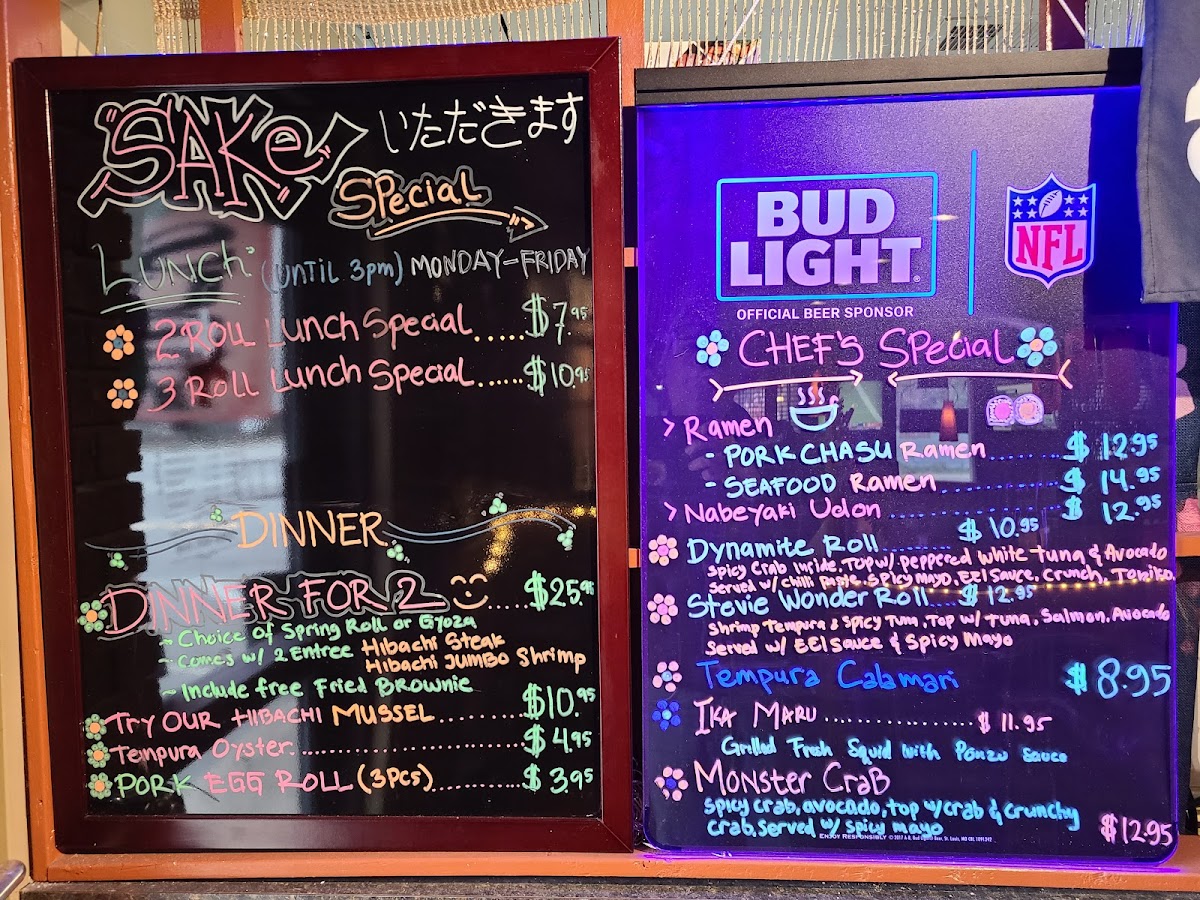 SAKe いただきます
Special
Lunch (UNTIL 3pm) MONDAY-FRIDAY
2 ROLL Lunch Special ..... $7.95
3 ROLL Lunch Special ...... $10.95
DINNER
DINNER FOR 2 ..... $25.95
~ Choice of Spring Roll or Gyoza
~ comes w/ 2 Entree Hibachi Steak
Hibachi Jumbo Shrimp
~ Include free Fried Brownie
TRY OUR HIBACHI MUSSEL .......... $10.95
Tempura Oyster ............................ $4.95
PORK EGG ROLL (3pcs) ............ $3.95
BUD
LIGHT
NFL
OFFICIAL BEER SPONSOR
CHEF'S Special
> Ramen
- PORK CHASU Ramen .......... $12.95
- SEAFOOD Ramen .............. $14.95
> Nabeyaki Udon ...................... $12.95
Dynamite Roll ........ $10.95
Spicy Crab Inside, Top w/ peppered White tuna & Avocado
Served w/ chilli paste, Spicy mayo, Eel Sauce, Crunch, Tobiko.
Stevie Wonder Roll ... $12.95
Shrimp Tempura & Spicy Tuna, Top w/ tuna, Salmon, Avocado
Served w/ Eel Sauce & Spicy Mayo
Tempura Calamari $8.95
Ika Maru .................... $11.95
Grilled Fresh Squid with Ponzu Sauce
Monster Crab
Spicy crab, avocado, top w/ crab & crunchy
crab, served w/ spicy mayo $12.95
ENJOY RESPONSIBLY